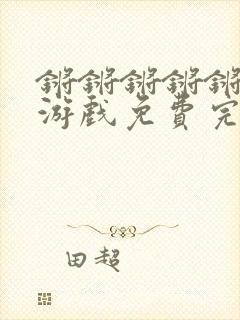 锵锵锵锵锵
游戏免费完
田超